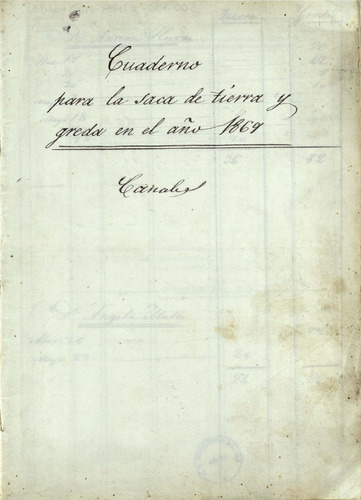 Cuaderno
para la saca de tierra y
greda en el año 1869
Canales